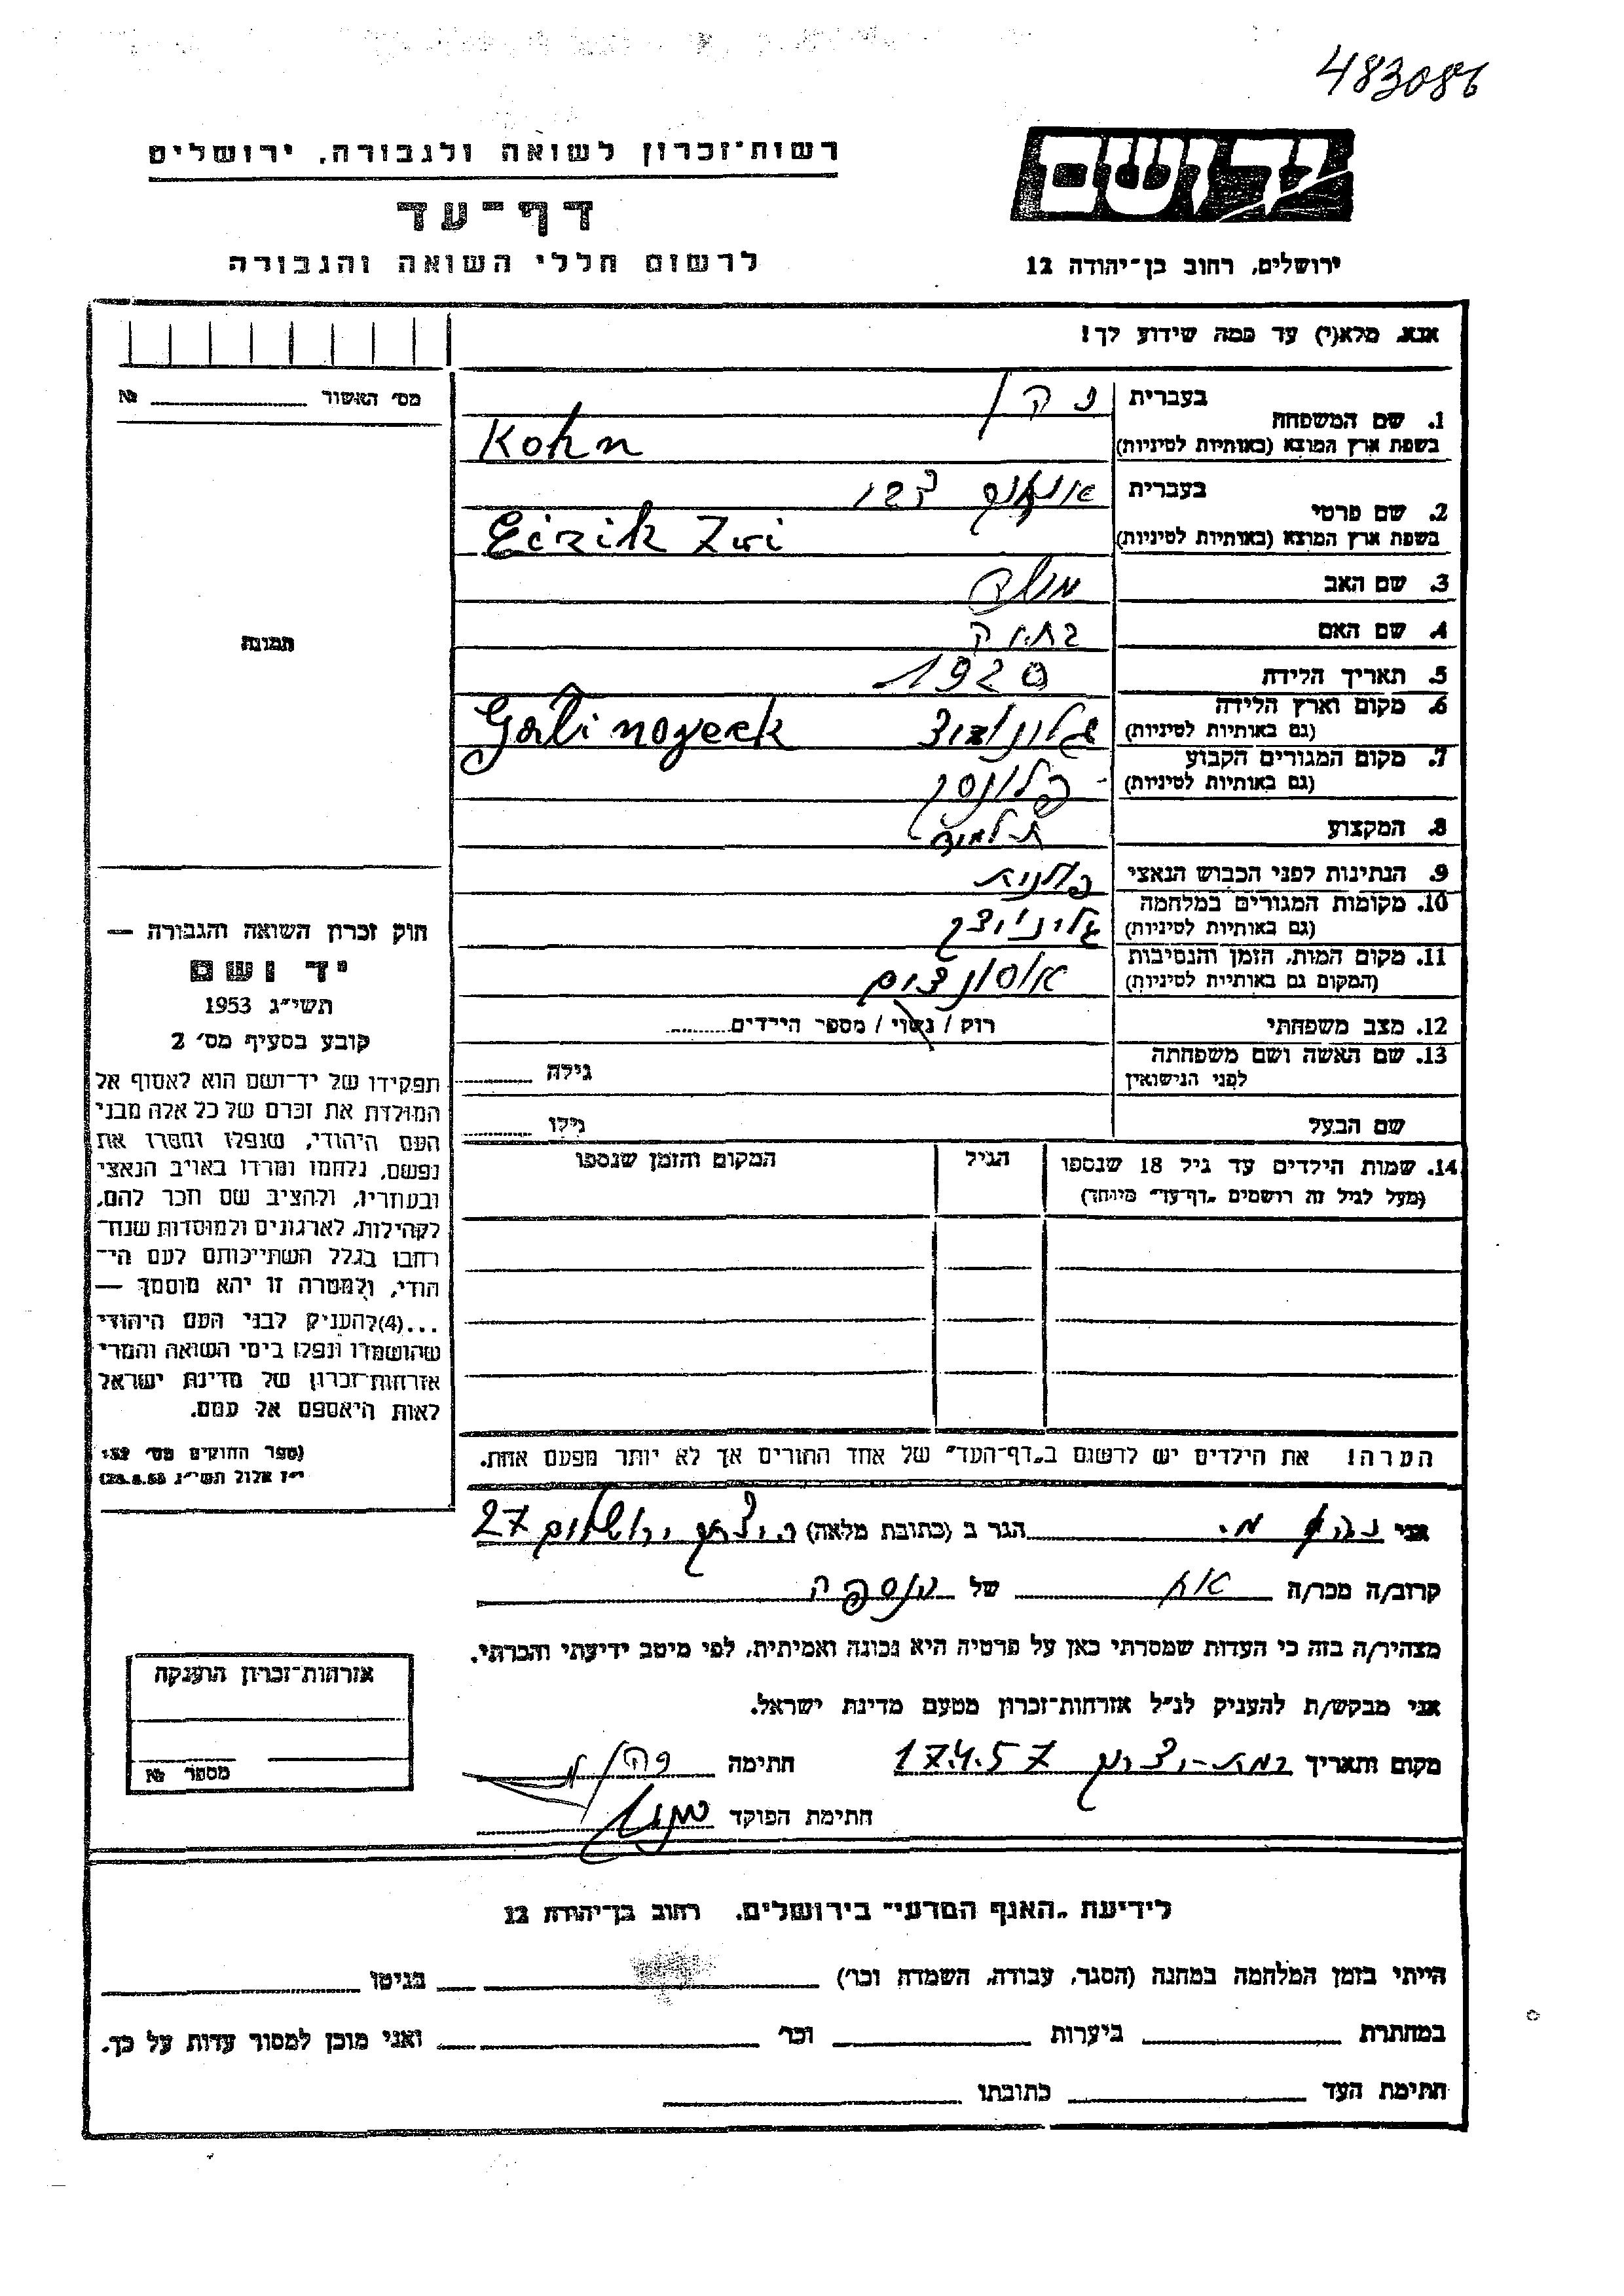 483086
רשות־זכרון לשואה ולגבורה, ירושלים
יד ושם
דף־עד
לרשום חללי השואה והגבורה
ירושלים, רחוב בן־יהודה 12
אנא, מלא(י) עד כמה שידוע לך!
מס׳ האשור № 
1. שם המשפחה בעברית כהן
בשפת ארץ המוצא (באותיות לטיניות) Kohn
2. שם פרטי בעברית צבי
בשפת ארץ המוצא (באותיות לטיניות) Eizik Zwi
3. שם האב
4. שם האם
5. תאריך הלידה 1920
6. מקום וארץ הלידה
(גם באותיות לטיניות)
7. מקום המגורים הקבוע
(גם באותיות לטיניות)
8. המקצוע תלמיד
9. הנתינות לפני הכבוש הנאצי פולנית
10. מקומות המגורים במלחמה
(גם באותיות לטיניות)
11. מקום המות, הזמן והנסיבות
(המקום גם באותיות לטיניות)
12. מצב משפחתי רוק / נשוי / מספר הילדים
13. שם האשה ושם משפחתה
לפני הנישואין גילה
שם הבעל גילו
14. שמות הילדים עד גיל 18 שנספו הגיל המקום והזמן שנספו
(מעל לגיל זה רושמים „דף־עד״ מיוחד)
תמונה
חוק זכרון השואה והגבורה —
יד ושם
תשי״ג 1953
קובע בסעיף מס׳ 2
תפקידו של יד־ושם הוא לאסוף אל
המולדת את זכרם של כל אלה מבני
העם היהודי, שנפלו ומסרו את
נפשם, נלחמו ומרדו באויב הנאצי
ובעוזריו, ולהציב שם וזכר להם,
לקהילות, לארגונים ולמוסדות שנח־
רבו בגלל השתייכותם לעם הי־
הודי, ולמטרה זו יהא מוסמך —
...(4) להעניק לבני העם היהודי
שהושמדו ונפלו בימי השואה והמרי
אזרחות־זכרון של מדינת ישראל
לאות היאספם אל עמם.
(ספר החוקים מס׳ 132
י״ז אלול תשי״ג 28.8.53)
הערה! את הילדים יש לרשום ב„דף־העד״ של אחד ההורים אך לא יותר מפעם אחת.
אני כהן מ. הגר ב (כתובת מלאה) 27
קרוב/ה מכר/ה אח של הנספה
מצהיר/ה בזה כי העדות שמסרתי כאן על פרטיה היא נכונה ואמיתית, לפי מיטב ידיעתי והכרתי.
אני מבקש/ת להעניק לנ״ל אזרחות־זכרון מטעם מדינת ישראל.
מקום ותאריך 17.4.57 חתימה כהן מ
חתימת הפוקד
אזרחות־זכרון הוענקה
מספר №
לידיעת „האגף המדעי״ בירושלים, רחוב בן־יהודה 12
הייתי בזמן המלחמה במחנה (הסגר, עבודה, השמדה וכו׳) בגיטו
במחתרת ביערות וכו׳ ואני מוכן למסור עדות על כך.
חתימת העד כתובתו